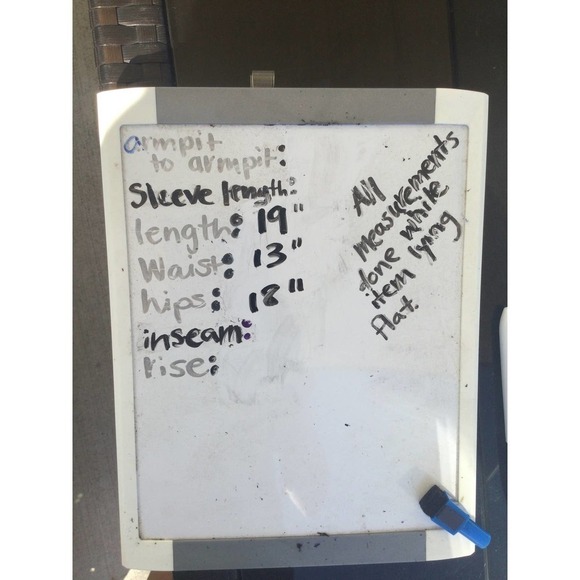 armpit
to armpit:
Sleeve length:
length: 19"
Waist: 13"
hips: 18"
inseam:
rise:
All
measurements
done while
item lying
flat.